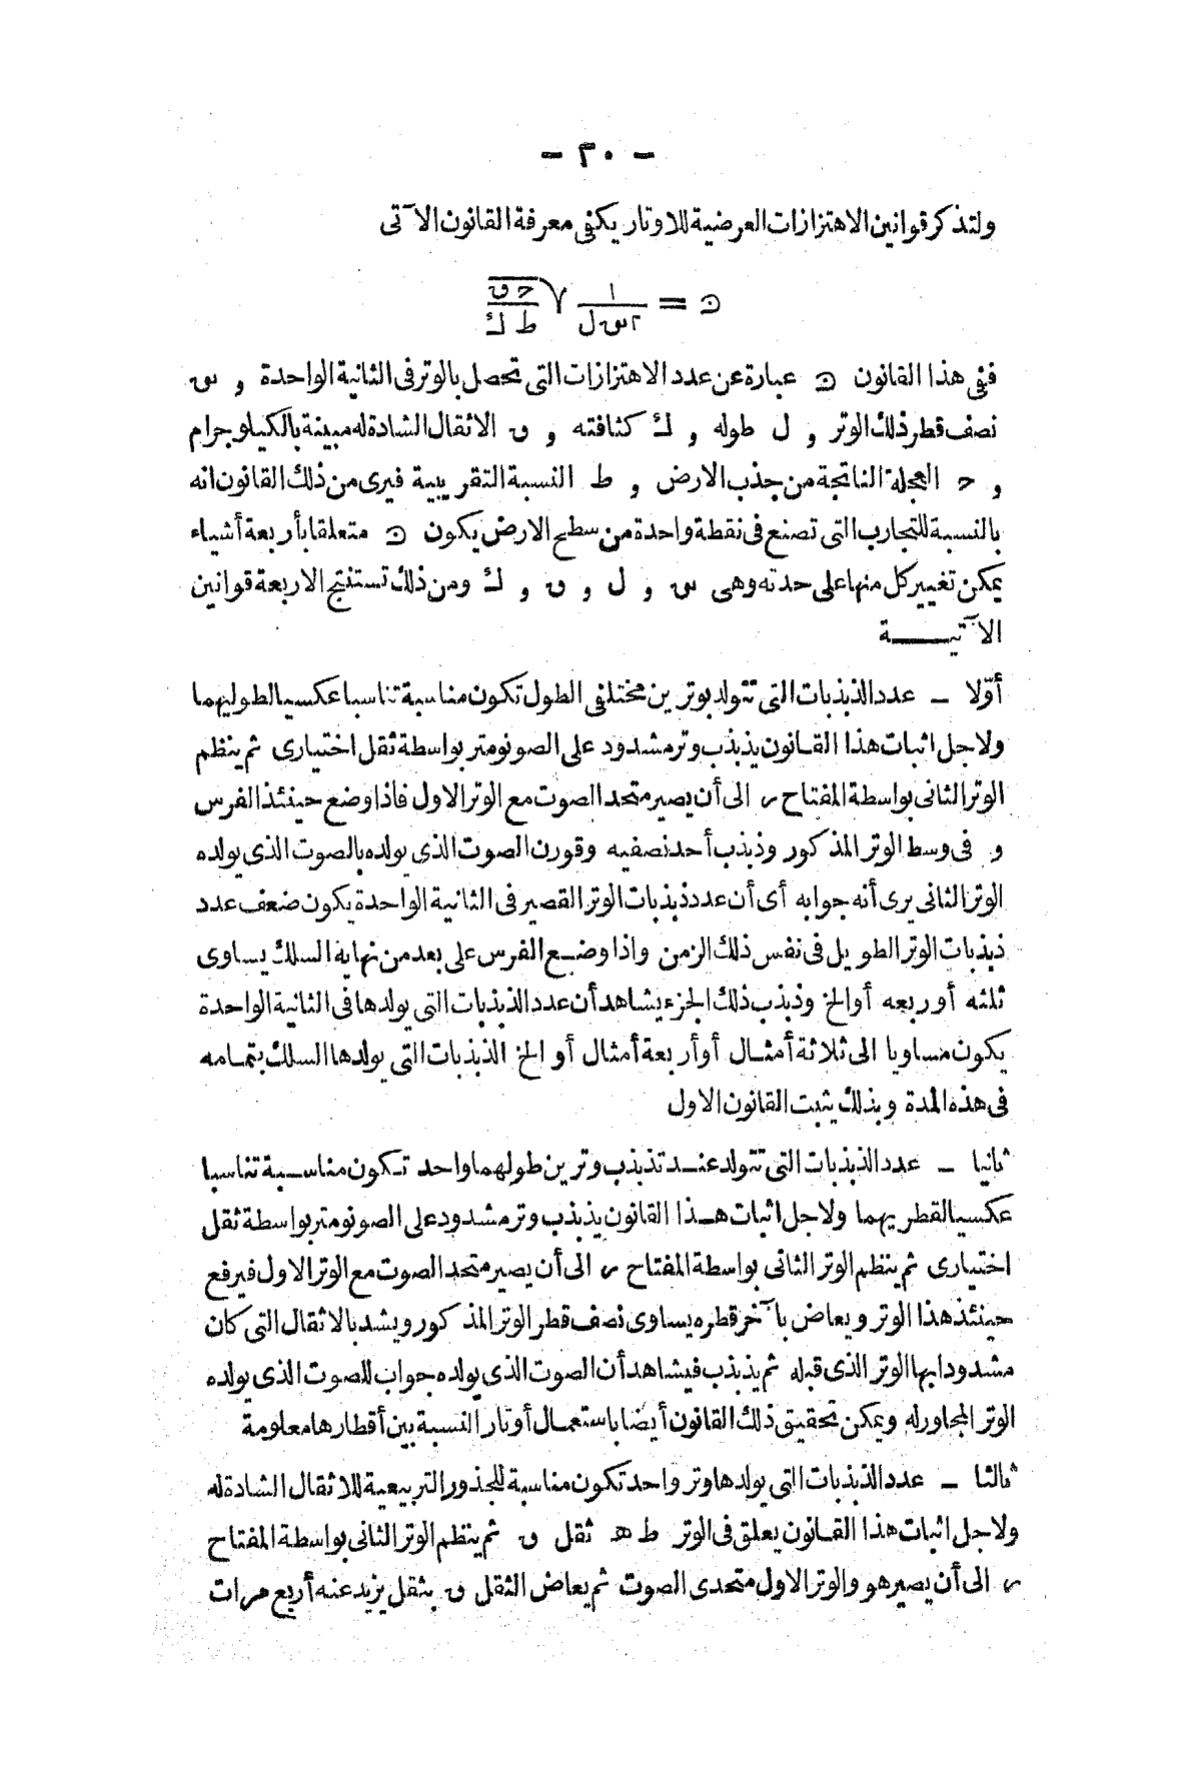 - ٣٠ -
ولتذكر قوانين الاهتزازات العرضية للاوتار يكفى معرفة القانون الآتى
ﮃ = ١/٢ س ل √ ح ق/ط ك
ففى هذا القانون ﮃ عبارة عن عدد الاهتزازات التى تحصل بالوتر فى الثانية الواحدة و س
نصف قطر ذلك الوتر و ل طوله و ك كثافته و ق الاثقال الشادة له مبينة بالكيلوجرام
و ح العجلة الناتجة من جذب الارض و ط النسبة التقريبية فيرى من ذلك القانون انه
بالنسبة للتجارب التى تصنع فى نقطة واحدة من سطح الارض يكون ﮃ متعلقا بأربعة أشياء
يمكن تغيير كل منها على حدته وهى س و ل و ق و ك ومن ذلك تستنتج الاربعة قوانين
الآتيـــة
أوّلا - عدد الذبذبات التى تتولد بوترين مختلفى الطول تكون مناسبة تناسبا عكسيا لطوليهما
ولاجل اثبات هذا القانون يذبذب وتر مشدود على الصونومتر بواسطة ثقل اختيارى ثم ينظم
الوتر الثانى بواسطة المفتاح م الى أن يصير متحد الصوت مع الوتر الاول فاذا وضع حينئذ الفرس
و فى وسط الوتر المذكور وذبذب أحد نصفيه وقورن الصوت الذى يولده بالصوت الذى يولده
الوتر الثانى يرى أنه جوابه أى أن عدد ذبذبات الوتر القصير فى الثانية الواحدة يكون ضعف عدد
ذبذبات الوتر الطويل فى نفس ذلك الزمن واذا وضع الفرس على بعد من نهاية السلك يساوى
ثلثه أو ربعه أو الخ وذبذب ذلك الجزء يشاهد أن عدد الذبذبات التى يولدها فى الثانية الواحدة
يكون مساويا الى ثلاثة أمثال أو أربعة أمثال أو الخ الذبذبات التى يولدها السلك بتمامه
فى هذه المدة وبذلك يثبت القانون الاول
ثانيا - عدد الذبذبات التى تتولد عند تذبذب وترين طولهما واحد تكون مناسبة تناسبا
عكسيا لقطريهما ولاجل اثبات هذا القانون يذبذب وتر مشدود على الصونومتر بواسطة ثقل
اختيارى ثم ينظم الوتر الثانى بواسطة المفتاح م الى أن يصير متحد الصوت مع الوتر الاول فيرفع
حينئذ هذا الوتر ويعاض بآخر قطره يساوى نصف قطر الوتر المذكور ويشد بالاثقال التى كان
مشدودا بها الوتر الذى قبله ثم يذبذب فيشاهد أن الصوت الذى يولده جواب للصوت الذى يولده
الوتر المجاور له ويمكن تحقيق ذلك القانون أيضا باستعمال أوتار النسبة بين أقطارها معلومة
ثالثا - عدد الذبذبات التى يولدها وتر واحد تكون مناسبة للجذور التربيعية للاثقال الشادة له
ولاجل اثبات هذا القانون يعلق فى الوتر ط هـ ثقل ق ثم ينظم الوتر الثانى بواسطة المفتاح
م الى أن يصير هو والوتر الاول متحدى الصوت ثم يعاض الثقل ق بثقل يزيد عنه أربع مرات